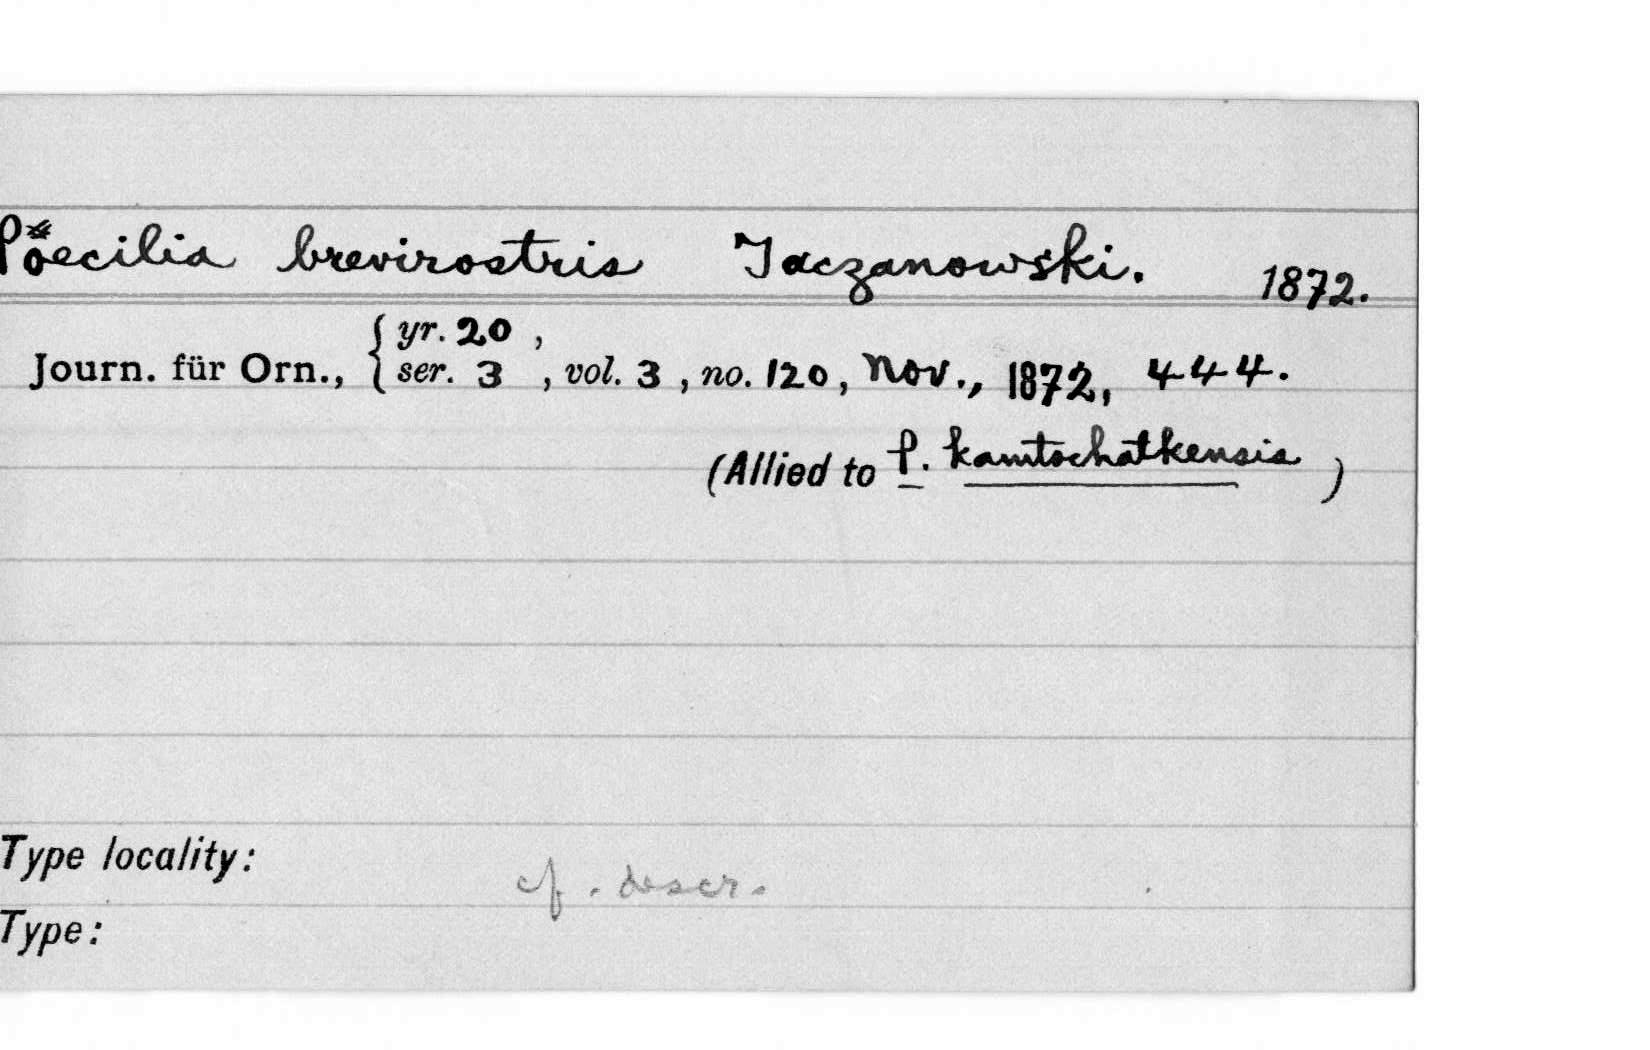 Poecilia brevirostris Taczanowski. 1872.
Journ. für Orn., { yr. 20 , ser. 3 , vol. 3 , no. 120, Nov., 1872, 444.
(Allied to P. kamtschatkensis )
Type locality:
cf. descr.
Type: